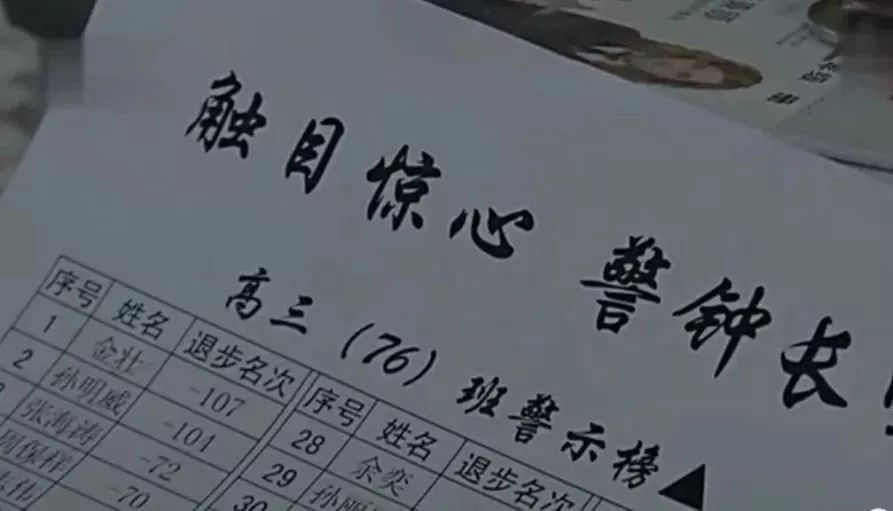 触目惊心 警钟长
高三(76)班警示榜▲
序号 姓名 退步名次 序号 姓名 退步名次
1 金壮 -107 28 余奕
2 孙明威 -104 29 孙丽
张海涛 -72 30
周保样 -70